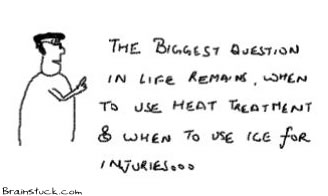 THE BIGGEST QUESTION
IN LIFE REMAINS, WHEN
TO USE HEAT TREATMENT
& WHEN TO USE ICE FOR
INJURIES...
Brainstuck.com